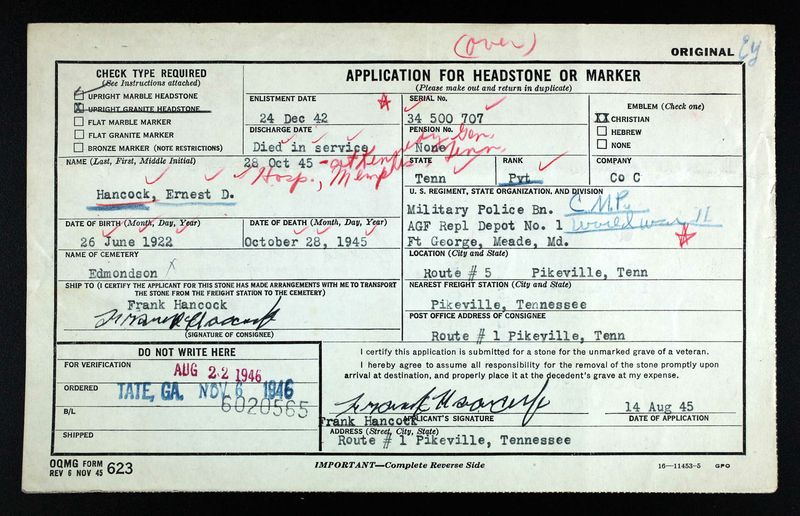 (over)
ORIGINAL Ey
CHECK TYPE REQUIRED
(See Instructions attached)
UPRIGHT MARBLE HEADSTONE
X UPRIGHT GRANITE HEADSTONE
FLAT MARBLE MARKER
FLAT GRANITE MARKER
BRONZE MARKER (NOTE RESTRICTIONS)
APPLICATION FOR HEADSTONE OR MARKER
(Please make out and return in duplicate)
ENLISTMENT DATE
24 Dec 42
DISCHARGE DATE
Died in service
28 Oct 45 - at Kennedy Gen.
Hosp., Memphis, Tenn.
SERIAL No.
34 500 707
PENSION No.
None
EMBLEM (Check one)
XX CHRISTIAN
HEBREW
NONE
NAME (Last, First, Middle Initial)
Hancock, Ernest D.
STATE
Tenn
RANK
Pvt
COMPANY
Co C
U. S. REGIMENT, STATE ORGANIZATION, AND DIVISION
Military Police Bn. C.M.P.
AGF Repl Depot No. 1 World War II
Ft George, Meade, Md.
DATE OF BIRTH (Month, Day, Year)
26 June 1922
DATE OF DEATH (Month, Day, Year)
October 28, 1945
NAME OF CEMETERY
Edmondson X
LOCATION (City and State)
Route # 5 Pikeville, Tenn
SHIP TO (I CERTIFY THE APPLICANT FOR THIS STONE HAS MADE ARRANGEMENTS WITH ME TO TRANSPORT
THE STONE FROM THE FREIGHT STATION TO THE CEMETERY)
Frank Hancock
Frank Hancock
(SIGNATURE OF CONSIGNEE)
NEAREST FREIGHT STATION (City and State)
Pikeville, Tennessee
POST OFFICE ADDRESS OF CONSIGNEE
Route # 1 Pikeville, Tenn
DO NOT WRITE HERE
FOR VERIFICATION AUG 22 1946
ORDERED TATE, GA. NOV 6 1946
6020565
B/L
SHIPPED
I certify this application is submitted for a stone for the unmarked grave of a veteran.
I hereby agree to assume all responsibility for the removal of the stone promptly upon
arrival at destination, and properly place it at the decedent's grave at my expense.
Frank Hancock
14 Aug 45
Frank Hancock APPLICANT'S SIGNATURE
DATE OF APPLICATION
ADDRESS (Street, City, State)
Route # 1 Pikeville, Tennessee
OQMG FORM
REV 6 NOV 45 623
IMPORTANT—Complete Reverse Side
16—11453-5 GPO